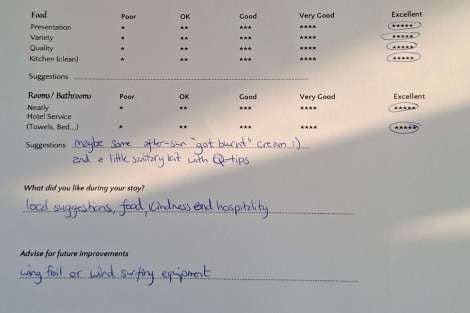 Food Poor OK Good Very Good Excellent
Presentation * ** *** **** *****
Variety * ** *** **** *****
Quality * ** *** **** *****
Kitchen (clean) * ** *** **** *****
Suggestions
Rooms/ Bathrooms Poor OK Good Very Good Excellent
Neatly * ** *** **** *****
Hotel Service
(Towels, Bed...) * ** *** **** *****
Suggestions maybe some after-sun "got burnt" cream :)
and a little sanitary kit with Q-tips
What did you like during your stay?
local suggestions, food, kindness and hospitality
Advise for future improvements
wing foil or wind surfing equipment